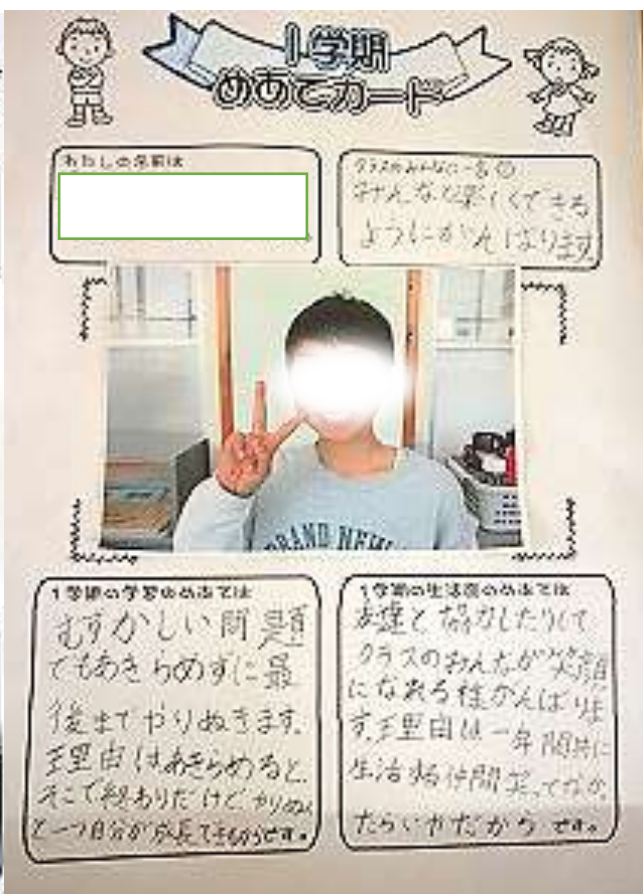 1学期
めあてカード
わたしの名前は
クラスのみんなに一言
みんなで楽しくできる
ようにがんばります
GRAND NEW
1学期の学習のめあては
むずかしい問題
でもあきらめずに最
後までやりぬきます。
理由はあきらめると、
そこで終わりだけどやりぬく
と一つ自分が成長できるからです。
1学期の生活面のめあては
友達と協力したりして
クラスのみんなが笑顔
になれる様がんばりま
す。理由は一年間共に
生活する仲間笑ってなか
たらいやだから です。